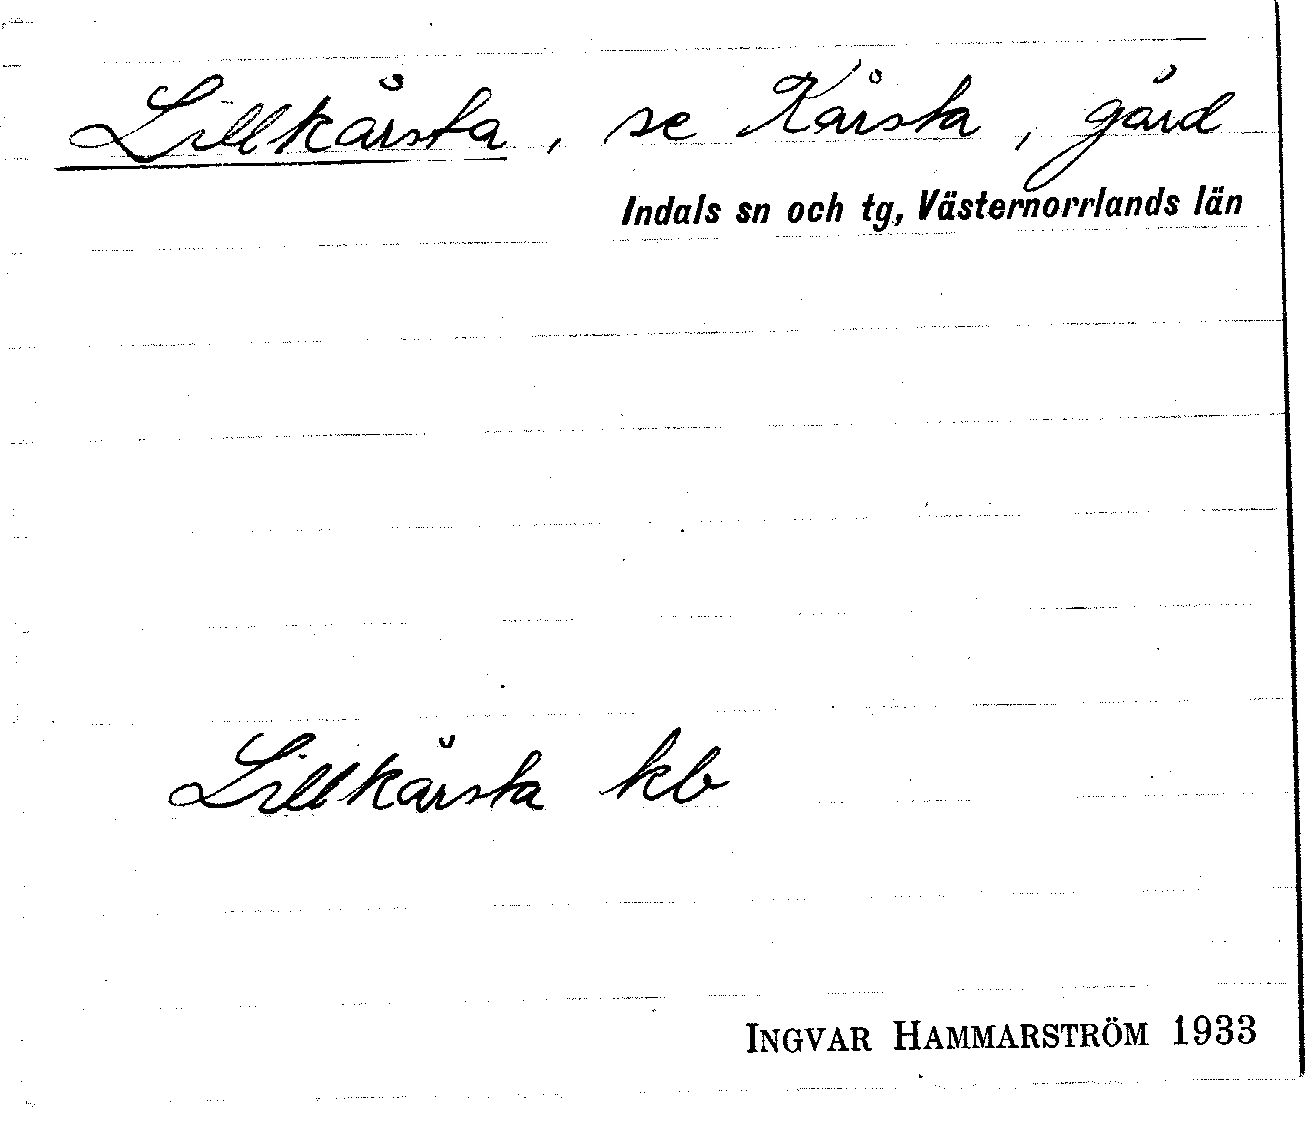 Lillkårsta, se Kårsta, gård
Indals sn och tg, Västernorrlands län
Lillkårsta kb
INGVAR HAMMARSTRÖM 1933